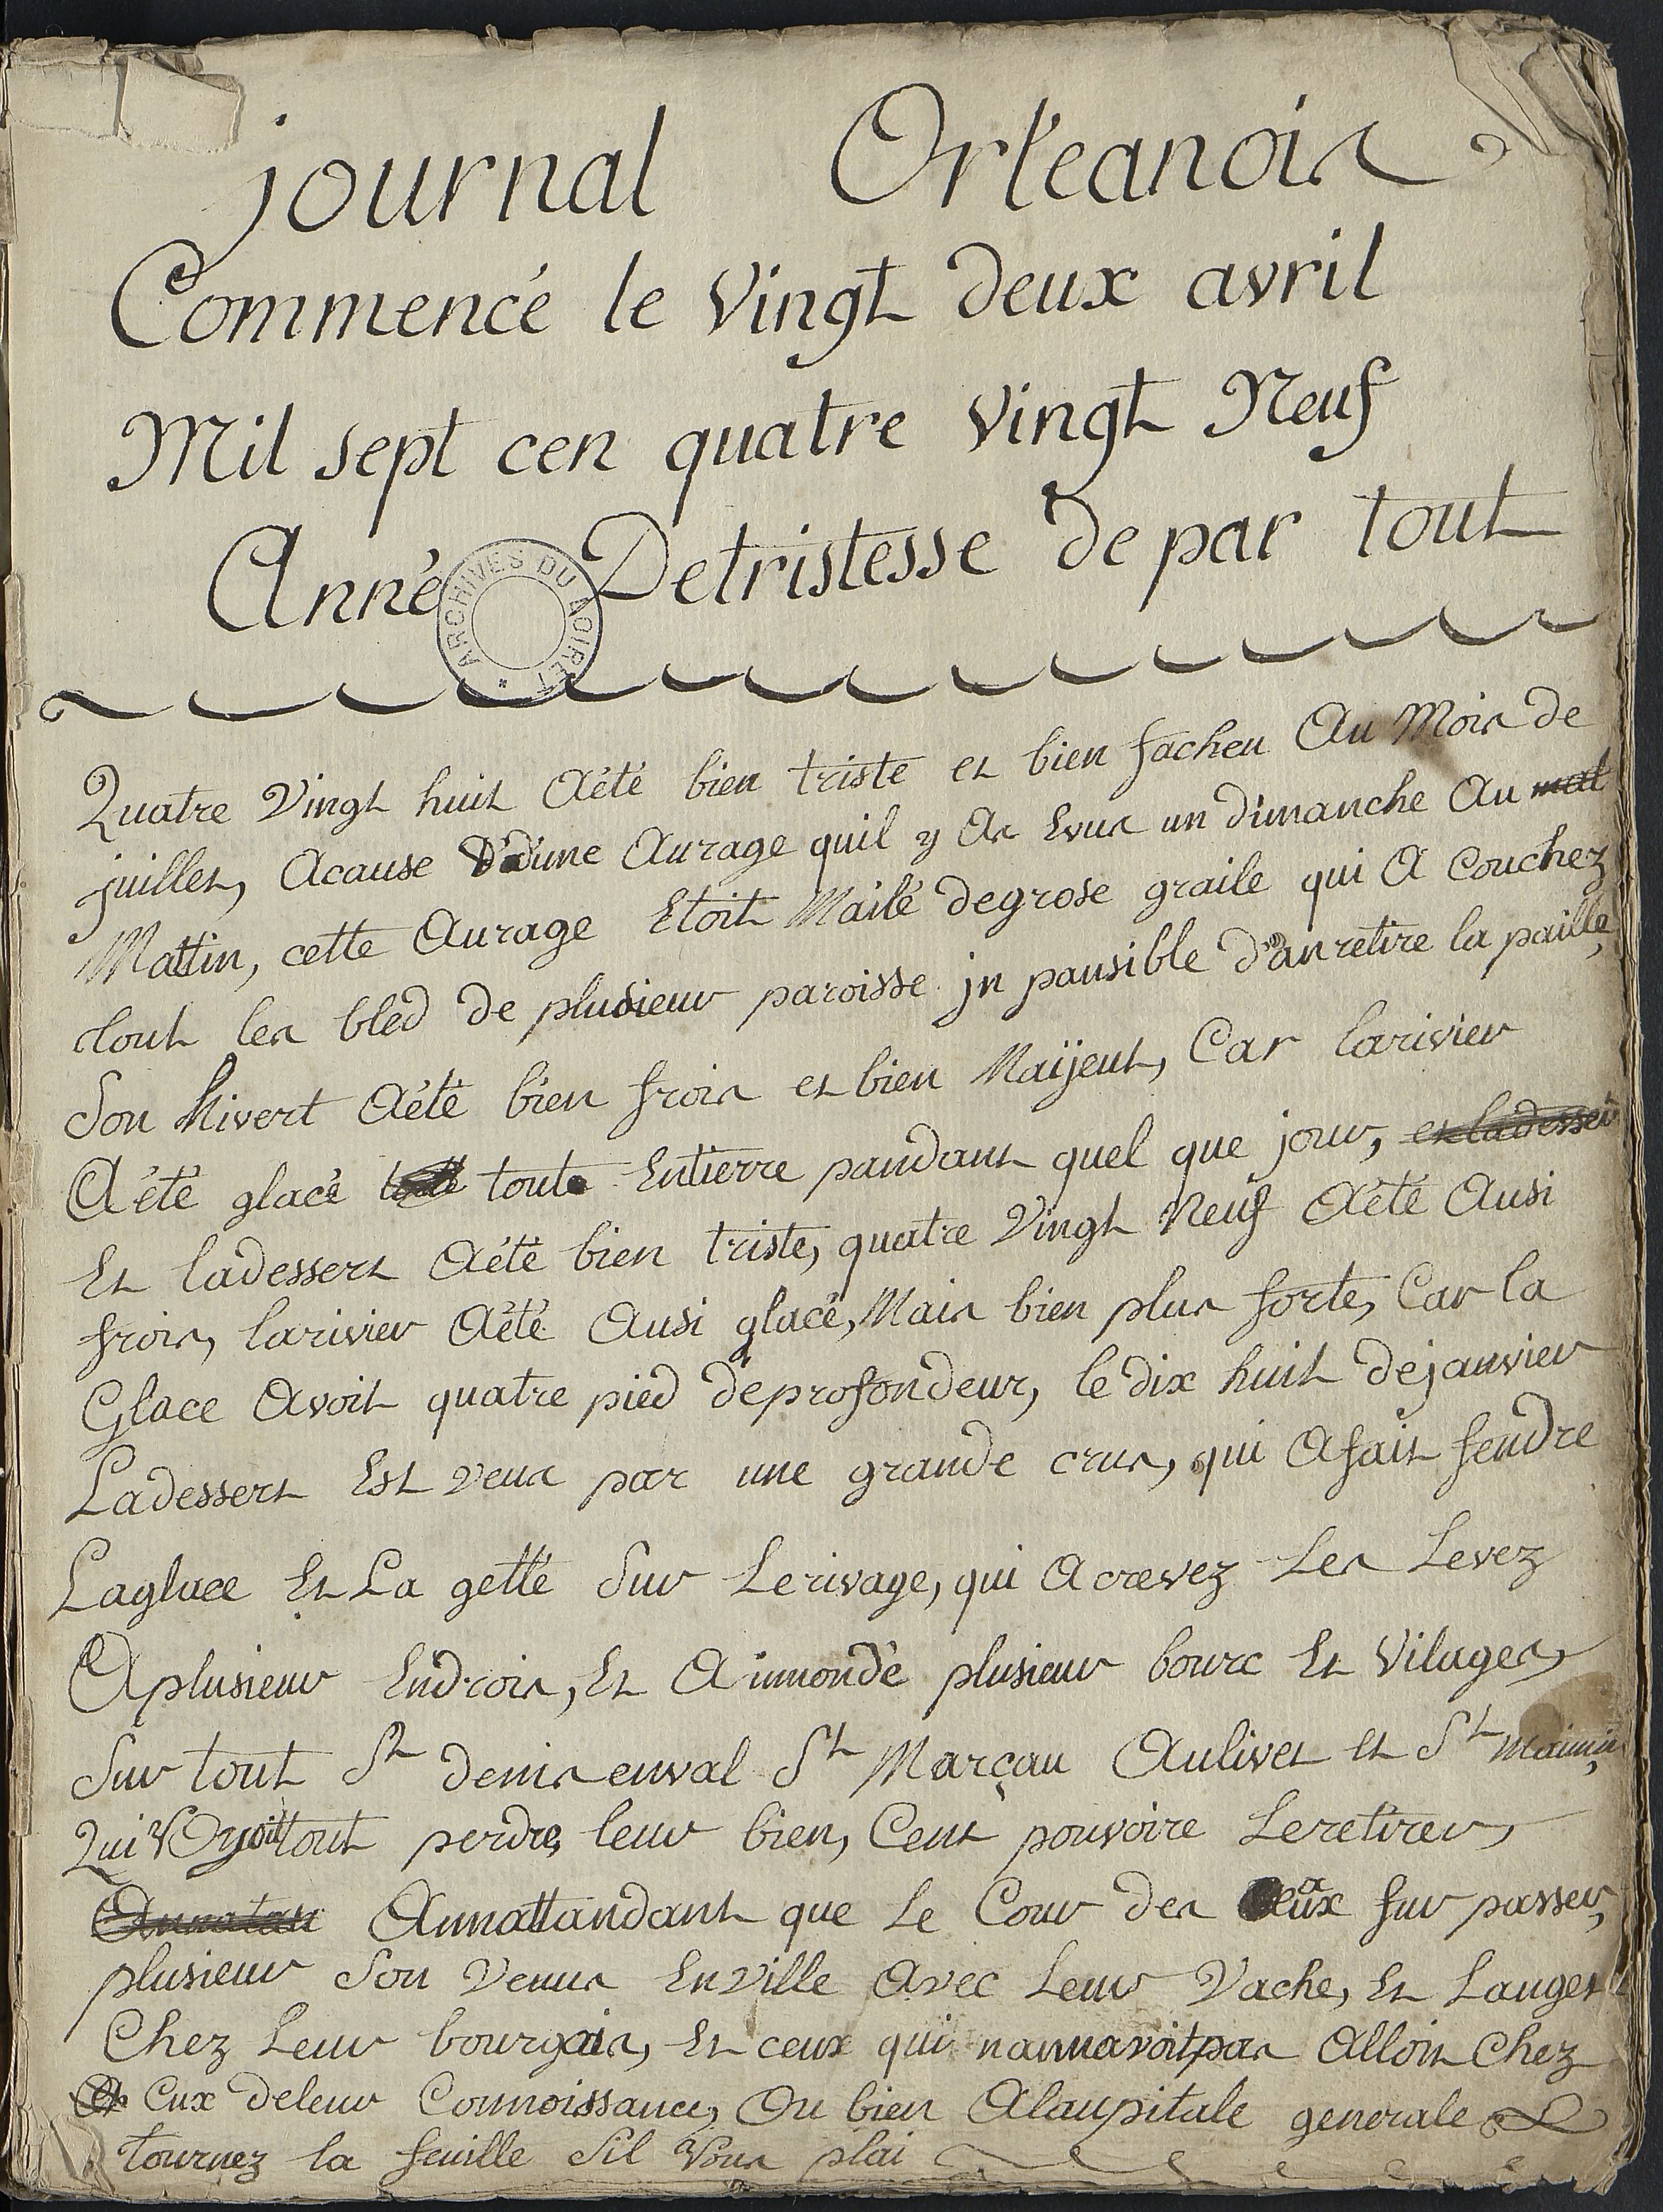 journal Orléanois
Commencé le Vingt deux avril
Mil sept cen quatre vingt Neuf
Anné Detristesse de par tout
ARCHIVES DU LOIRET
Quatre Vingt huit Aété bien triste et bien facheu Au Mois de
juillet, Acause D'une Aurage quil y As Evus un dimanche Au mat
Mattin, cette Aurage Etoit Mailé degrose graile qui A Couchez
tout les bled de plusieur paroisse jn pausible d'an retire la paille,
Son hivert Aété bien frois et bien Naijeut, Car larivier
Aété glacé toute Entierre pandant quel que jour, et ladesser
Et ladessert Aété bien triste, quatre Vingt Neuf Aété Ausi
frois, larivier Aété Ausi glacé, Mais bien plus forte, Car la
Glace Avoit quatre pied deprofondeur, le dix huit dejanvier
Ladessert Est venus par une grande crus, qui Afait fendre
Laglace Et La getté Sur Lerivage, qui A crevez Les Levez
Aplusieur Endrois, Et Ainnondé plusieur bourc Et Vilages,
Sur tout St denis enval St Marçau Aulivet et St Maimin,
Qui Voyoit tout perdre leur bien, Cent pouvoire Leretirer,
Annatan Annattandant que Le Cour des Eaux fur passer,
plusieur Son Venus En ville Avec Leur Vache, Et Lauger
Chez Leur bourgois, Et ceux qui nannavoit pas Alloit Chez
Eux deleur Connoissance, Ou bien Alaupitale generale
tournez la feuille Sil vous plai